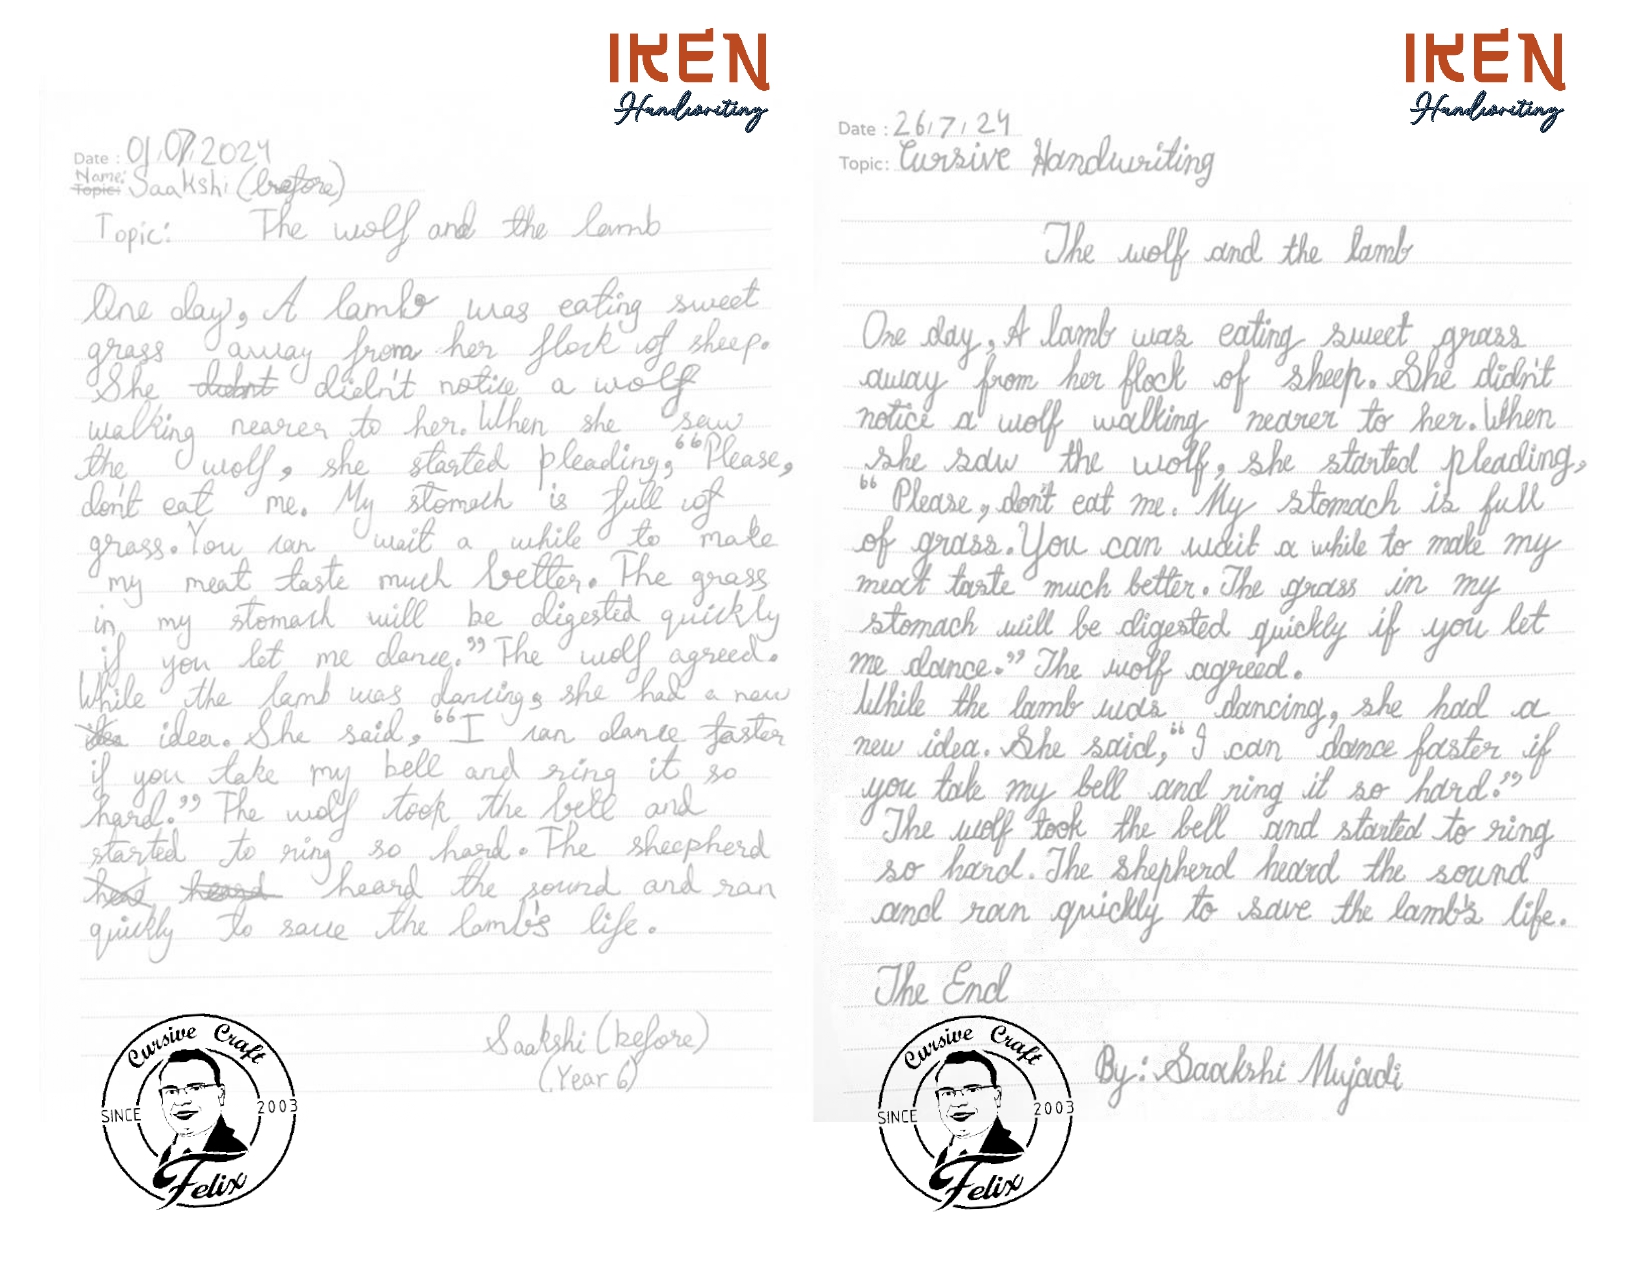 IKEN
Handwriting
Date : 01/07/2024
Name:
Topic: Saakshi (before)
Topic: The wolf and the lamb
One day, A lamb was eating sweet
grass away from her flock of sheep.
She didnt didn't notice a wolf
walking nearer to her. When she saw
the wolf, she started pleading, “Please,
don't eat me. My stomach is full of
grass. You can wait a while to make
my meat taste much better. The grass
in my stomach will be digested quickly
if you let me dance.” The wolf agreed.
While the lamb was dancing, she had a new
idea. She said, “I can dance faster
if you take my bell and ring it so
hard.” The wolf took the bell and
started to ring so hard. The sheepherd
heard heard the sound and ran
quickly to save the lamb's life.
Saakshi (before)
(Year 6)
Cursive Craft
SINCE 2003
Felix
IKEN
Handwriting
Date : 26/7/24
Topic: Cursive Handwriting
The wolf and the lamb
One day, A lamb was eating sweet grass
away from her flock of sheep. She didn't
notice a wolf walking nearer to her. When
she saw the wolf, she started pleading,
“Please, don't eat me. My stomach is full
of grass. You can wait a while to make my
meat taste much better. The grass in my
stomach will be digested quickly if you let
me dance.” The wolf agreed.
While the lamb was dancing, she had a
new idea. She said, “I can dance faster if
you take my bell and ring it so hard.”
The wolf took the bell and started to ring
so hard. The shepherd heard the sound
and ran quickly to save the lamb's life.
The End
By: Saakshi Mujadi
Cursive Craft
SINCE 2003
Felix